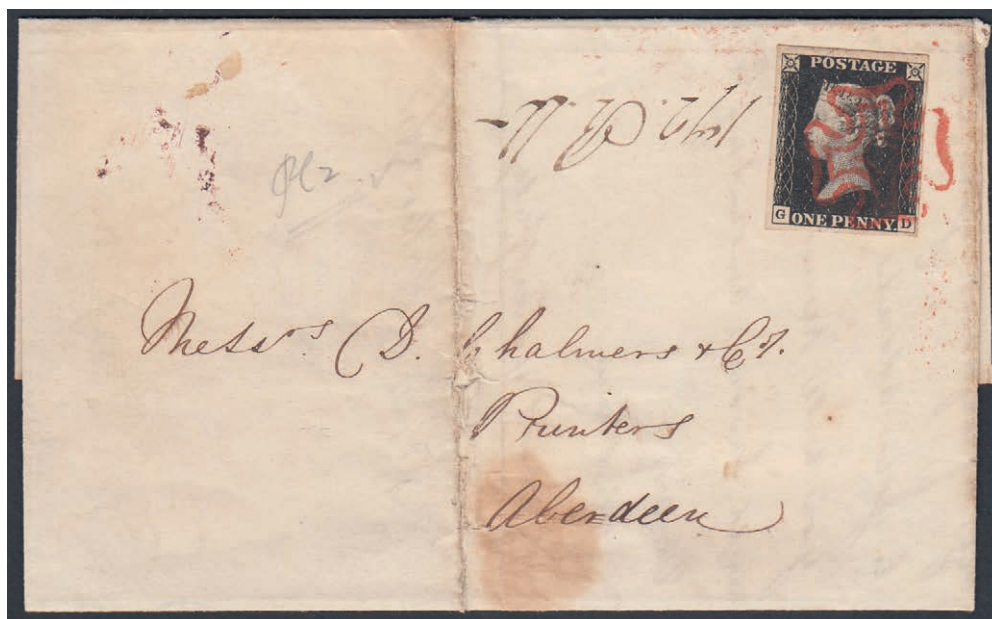 POSTAGE
G ONE PENNY. D
Pl 2
Messrs D. Chalmers & Co.
Printers
Aberdeen